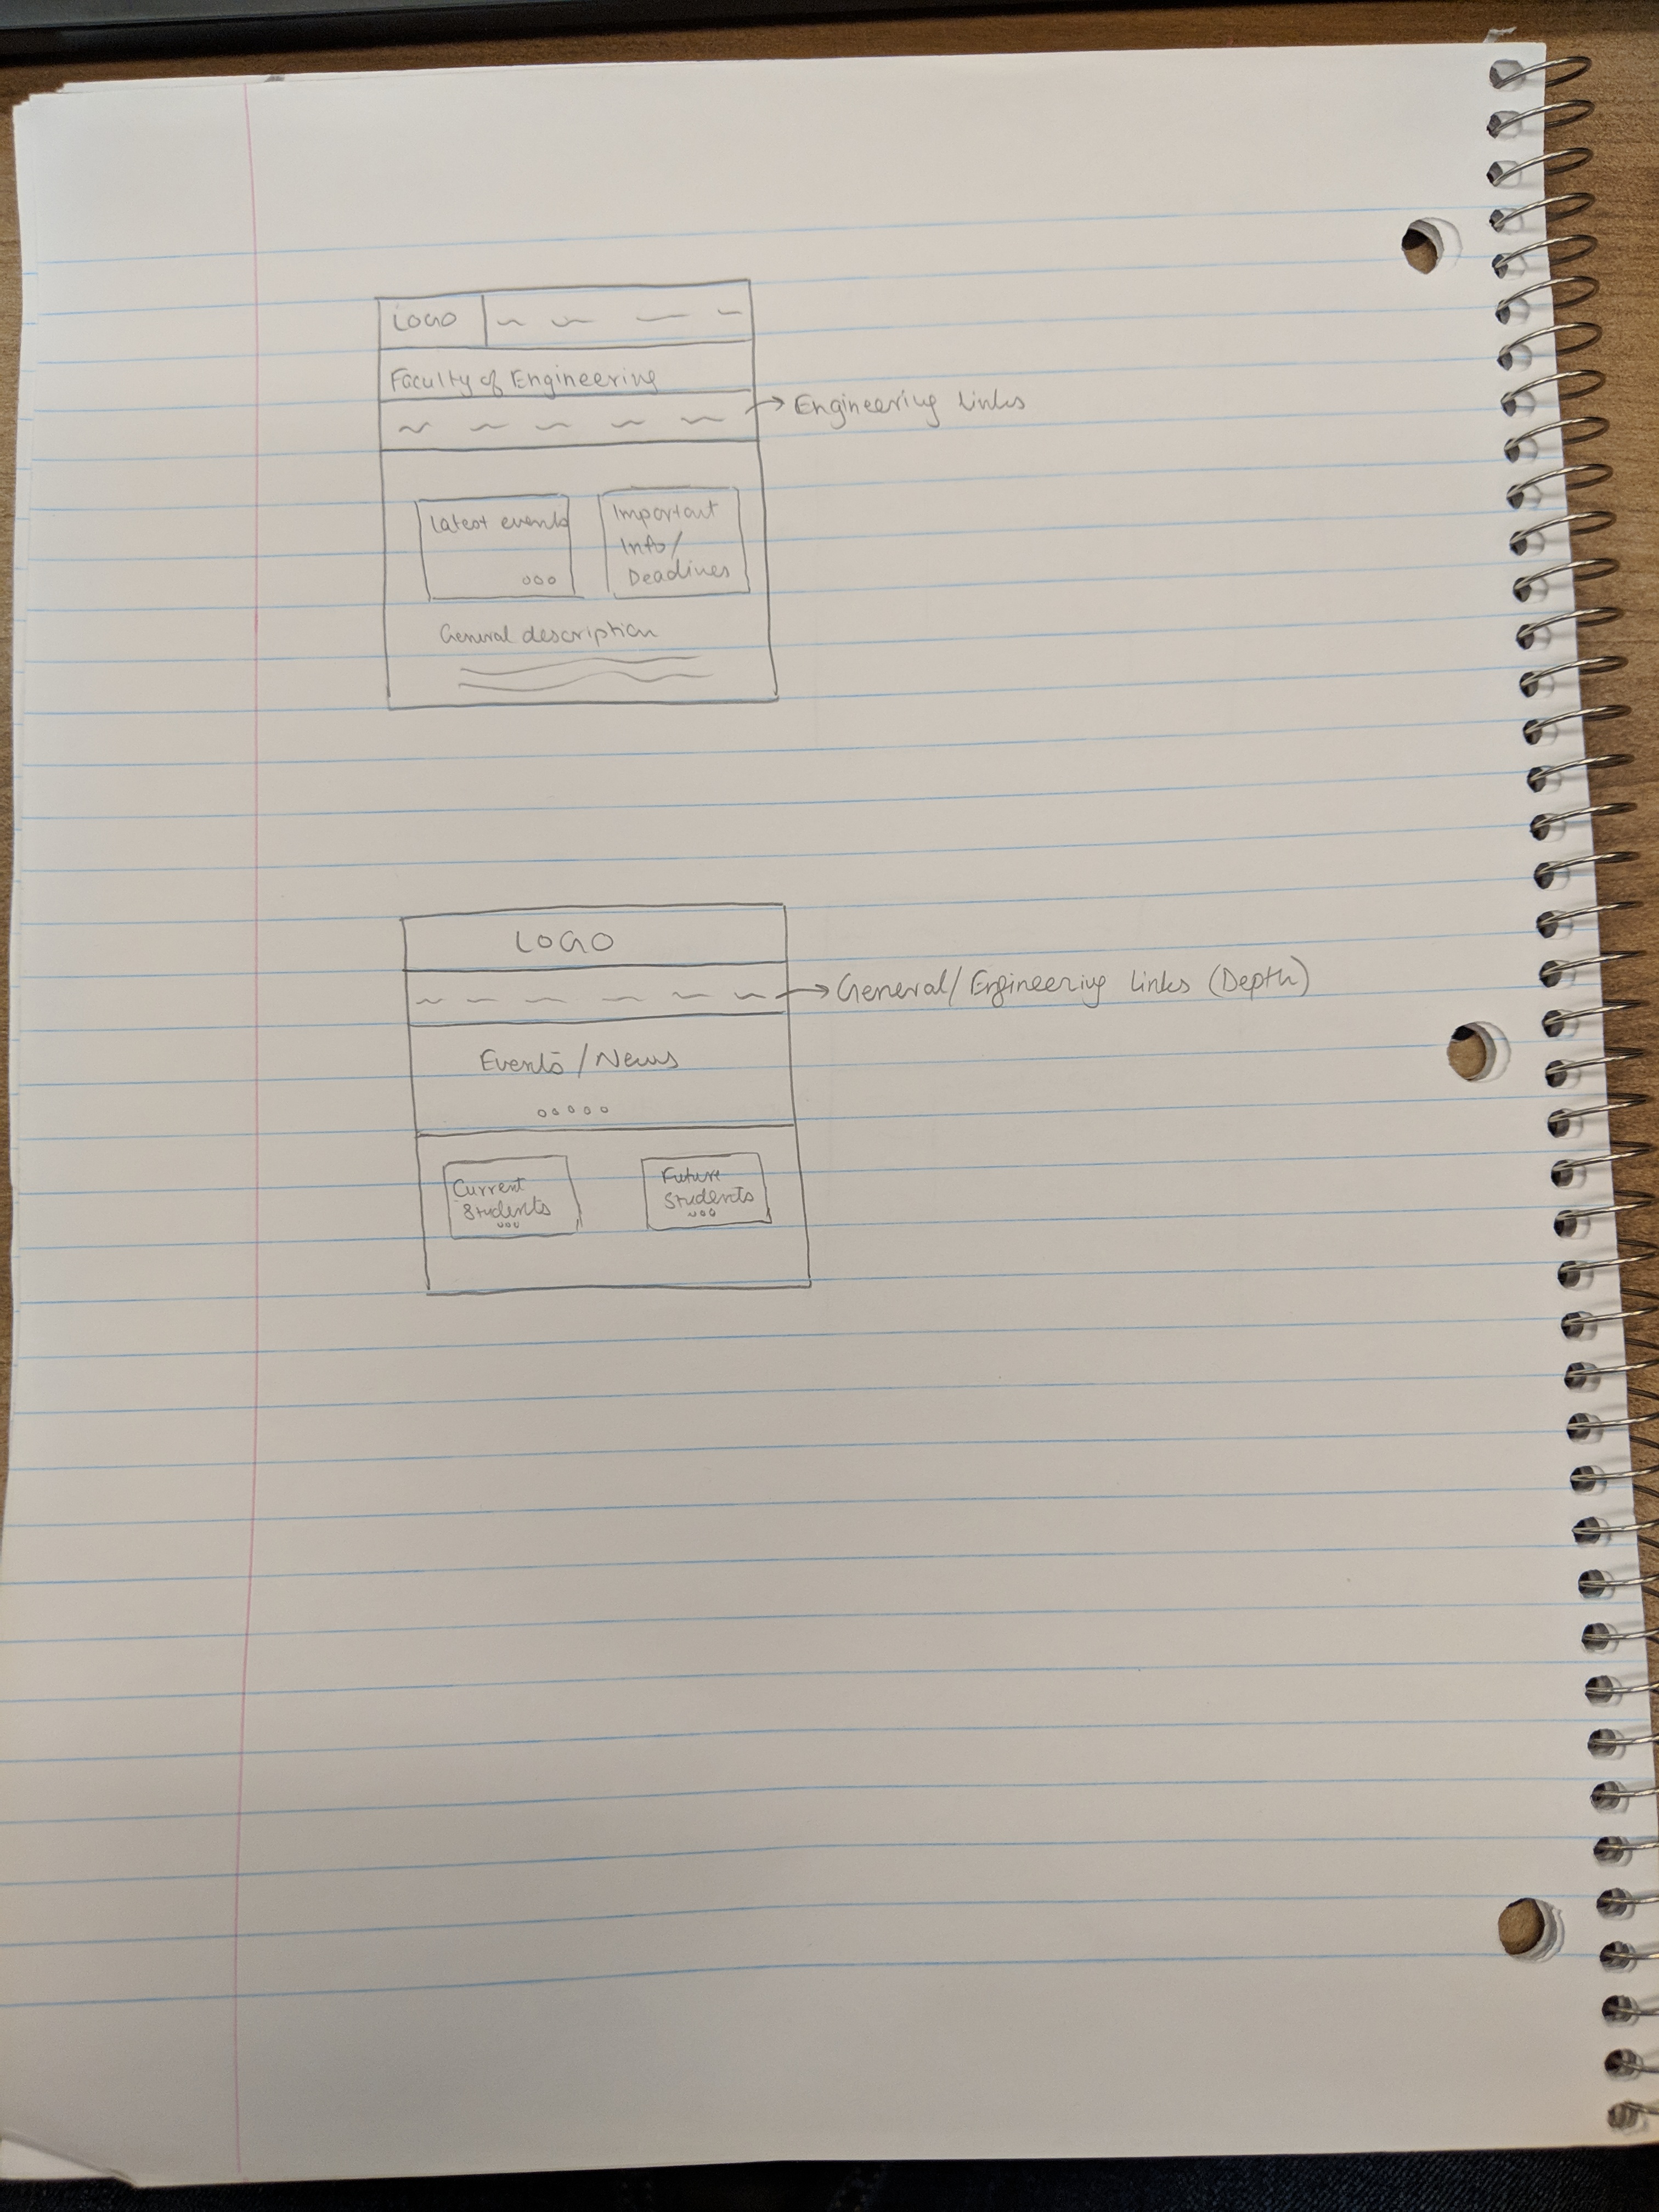 LOGO
Faculty of Engineering
Engineering Links
Latest events
Important
Info/
Deadlines
General description
LOGO
General/Engineering Links (Depth)
Events/News
Current
Students
Future
Students